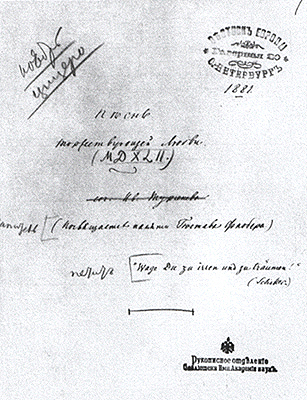 цицеро
ВѢСТНИКЪ ЕВРОПЫ
Галерная 20
С. ПЕТЕРБУРГЪ
1881.
Пѣснь
торжествующей Любви.
(MDXLII.)
соч. Ив. Тургенева
(Посвящается памяти Гюстава Флобера)
"Wage Du zu irren und zu träumen!"
(Schiller.)
Рукописное отдѣленіе
Библіотеки Имп. Академіи наукъ.